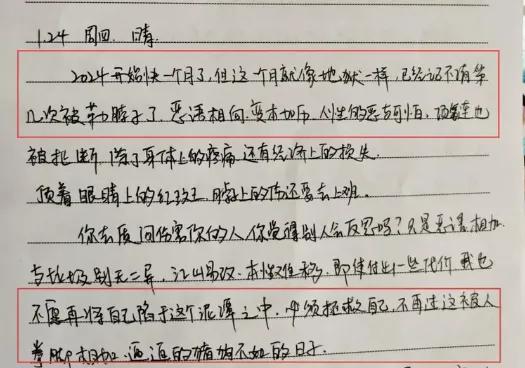 1.24 周四. 晴.
2024开始快一个月了,但这个月就像地狱一样,已经记不清第
几次被勒脖子了,恶语相向,变本加厉,人性的恶真可怕,项链也
被扯断,除了身体上的疼痛,还有经济上的损失.
顶着眼睛上的红斑,脖子上的伤还要去上班.
你去质问伤害你的人,你觉得别人会反思吗?只是恶语相加
与垃圾别无二异,江山易改,本性难移,即使付出一些代价我也
不愿再将自己陷于这个泥潭之中,必须拯救自己,不再过这被人
拳脚相加,逼迫的猪狗不如的日子.